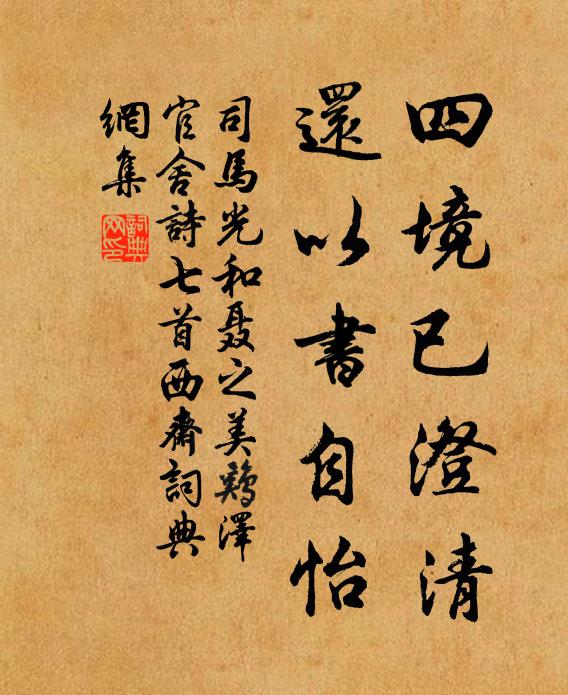 四境已澄清
還以書自怡
司馬光和聂之美鷄澤
官舍詩七首西齋詞典
網集
詞典
网印